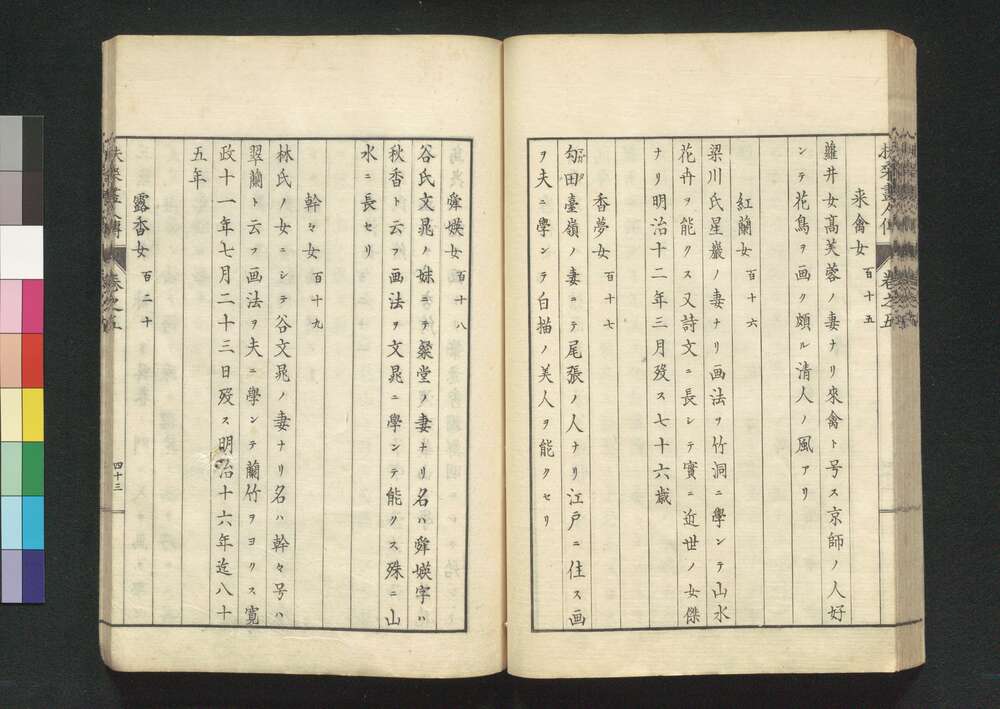 扶桑畫人傳 卷之五
来禽女 百十五
蘿井女高芙蓉ノ妻ナリ來禽ト号ス京師ノ人好
ンテ花鳥ヲ画ク頗ル清人ノ風アリ
紅蘭女 百十六
梁川氏星巖ノ妻ナリ画法ヲ竹洞ニ學ンテ山水
花卉ヲ能クス又詩文ニ長シテ實ニ近世ノ女傑
ナリ明治十二年三月歿ス七十六歳
香夢女 百十七
勾田臺嶺ノ妻ニテ尾張ノ人ナリ江戸ニ住ス画
ヲ夫ニ學ンテ白描ノ美人ヲ能クセリ
舜媖女 百十八
谷氏文晁ノ妹ニテ粲堂ノ妻ナリ名ハ舜媖字ハ
秋香ト云フ画法ヲ文晁ニ學ンテ能クス殊ニ山
水ニ長セリ
幹々女 百十九
林氏ノ女ニシテ谷文晁ノ妻ナリ名ハ幹々号ハ
翠蘭ト云フ画法ヲ夫ニ學ンテ蘭竹ヲヨクス寛
政十一年七月二十三日歿ス明治十六年迄八十
五年
露香女 百二十
扶桑畫人傳 卷之五 四十三